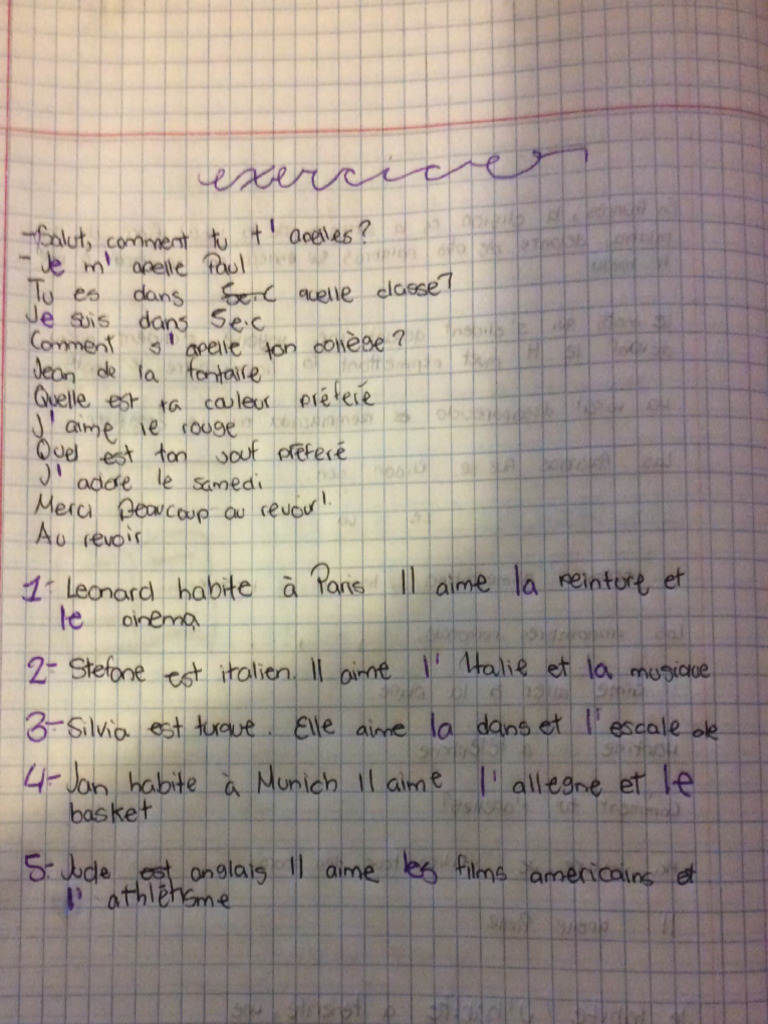 exercices
-Salut, comment tu t' apelles?
- Je m' apelle Paul
Tu es dans quelle classe?
Je suis dans 5e.C
Comment s' apelle ton collège?
Jean de la fontaire
Quelle est ta couleur préferé
J' aime le rouge
Quel est ton jout préferé
J' adore le samedi
Merci Beaucoup au revoir!
Au revoir
1- Leonard habite à Paris Il aime la peinture et
le cinema
2- Stefane est italien. Il aime l' Italie et la musique
3- Silvia est turque. Elle aime la dans et l' escalade
4- Jan habite à Munich Il aime l' allegne et le
basket
5- Jude est anglais Il aime les films americains et
l' athlétisme